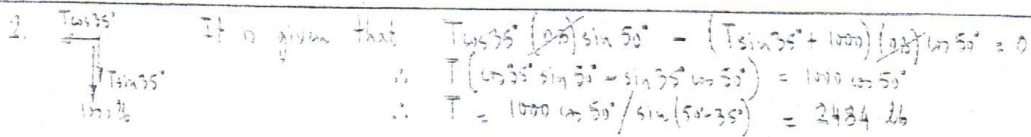 2. Tcos35° It is given that Tcos35° (0.5) sin 50° - (Tsin35° + 1000) (0.5) cos 50° = 0
Tsin35° ∴ T (cos 35° sin 50° - sin 35° cos 50°) = 1000 cos 50°
1000 lb ∴ T = 1000 cos 50° / sin (50°-35°) = 2484 lb